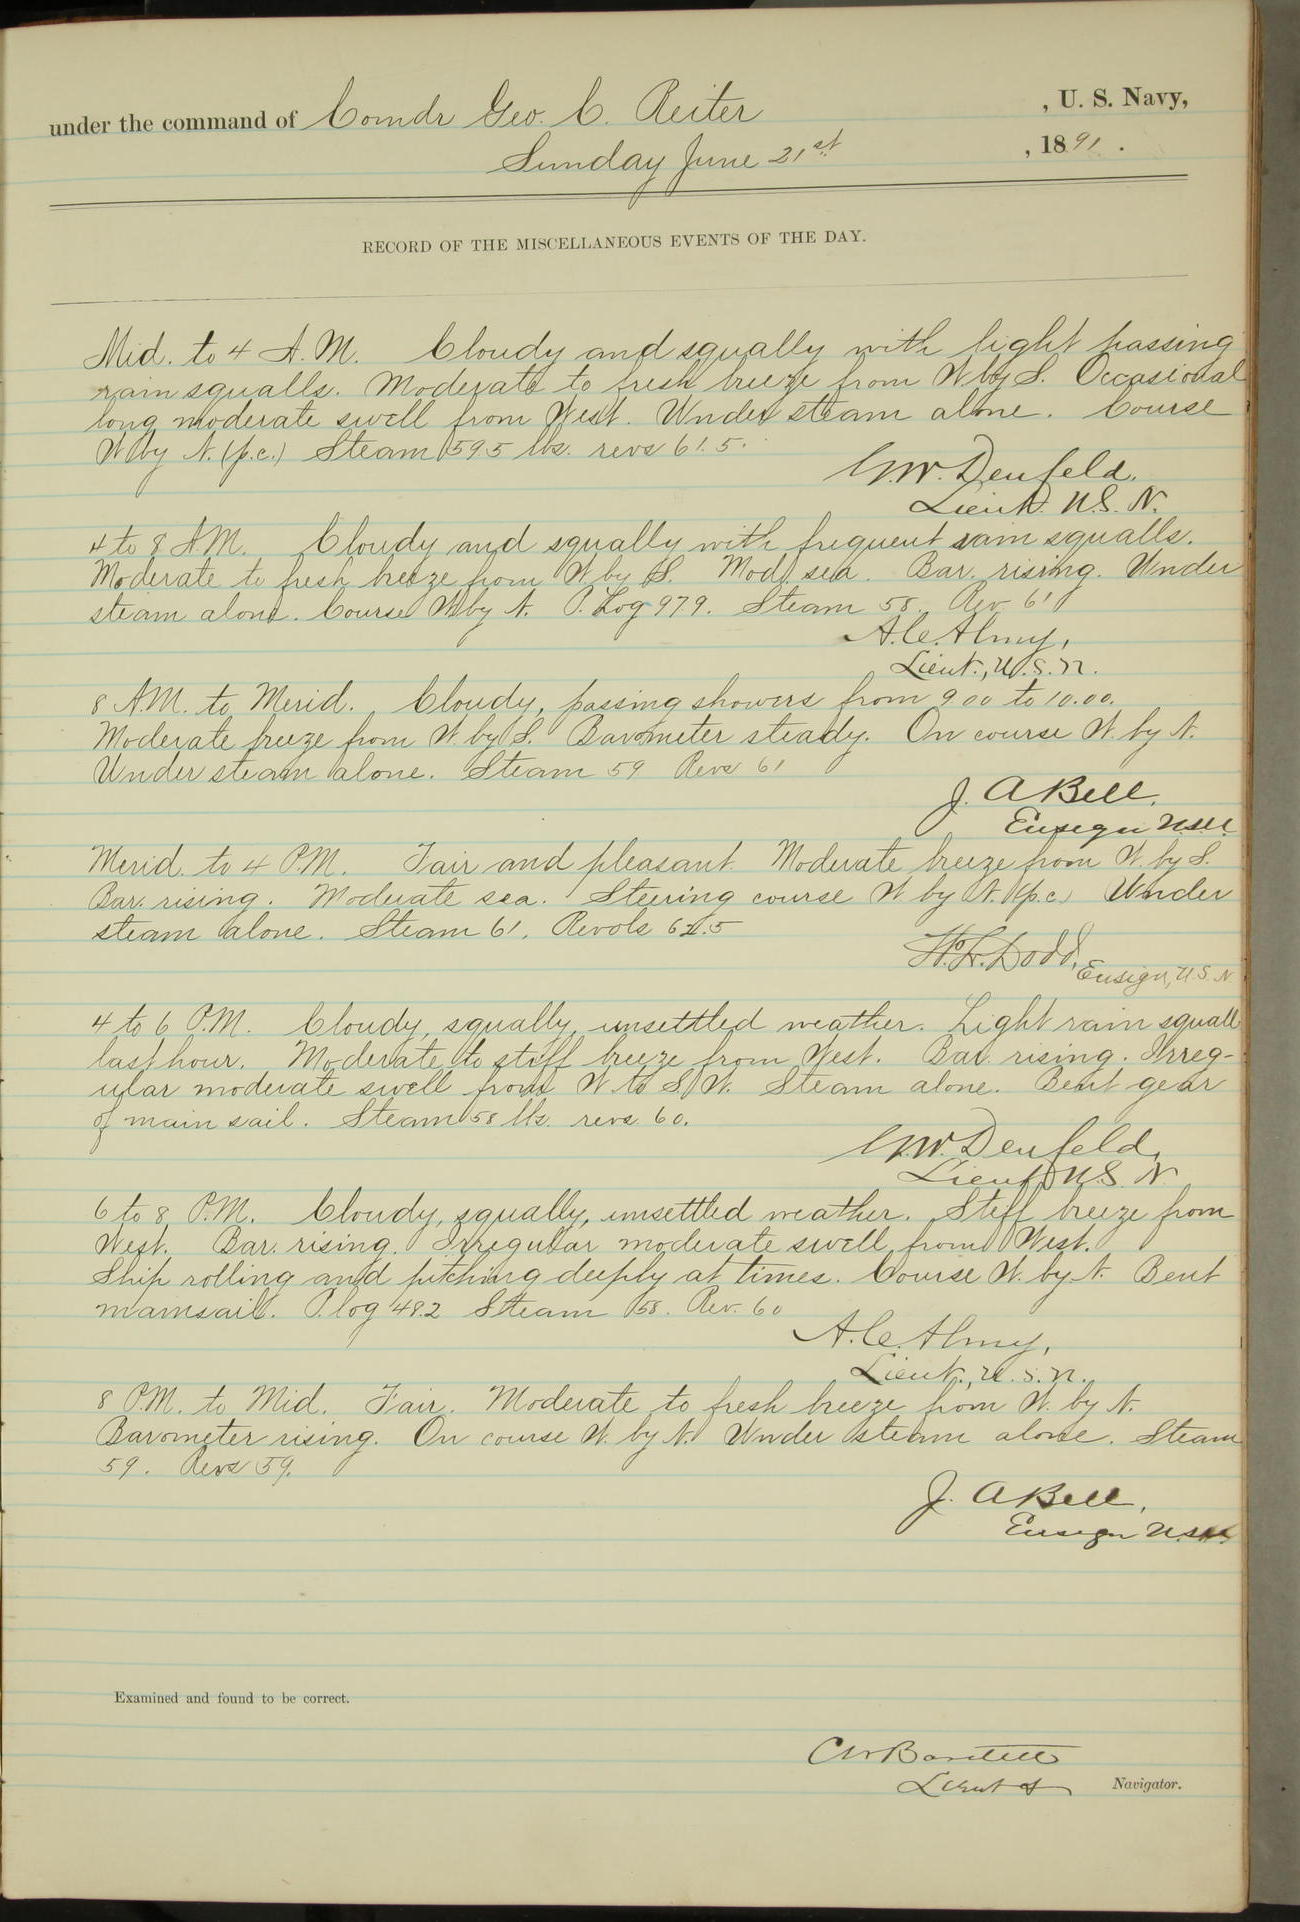 under the command of Comdr Geo. C. Reiter , U. S. Navy,
Sunday June 21st , 1891.
RECORD OF THE MISCELLANEOUS EVENTS OF THE DAY.
Mid. to 4 A.M. Cloudy and squally with light passing
rain squalls. Moderate to fresh breeze from W by S. Occasional
long moderate swell from West. Under steam alone. Course
W by N. (p.c.) Steam 59.5 lbs. revs 61.5.
G.W. Denfeld.
Lieut. U.S.N.
4 to 8 A.M. Cloudy and squally with frequent rain squalls.
Moderate to fresh breeze from W by S. Mod. sea. Bar. rising. Under
steam alone. Course W by N. P. Log 97.9. Steam 58. Rev 61
A.C. Almy,
Lieut., U.S.N.
8 A.M. to Merid. Cloudy, passing showers from 9.00 to 10.00.
Moderate breeze from W. by S. Barometer steady. On course W. by N.
Under steam alone. Steam 59 Revs 61
J. A Bell,
Ensign U.S.N.
Merid. to 4 P.M. Fair and pleasant. Moderate breeze from W. by S.
Bar. rising. Moderate sea. Steering course W by N. (p.c.) Under
steam alone. Steam 61, Revols 62.5
Dodd, Ensign, U.S.N.
4 to 6 P.M. Cloudy, squally, unsettled weather. Light rain squall
last hour. Moderate to stiff breeze from West. Bar. rising. Irreg-
ular moderate swell from W. to S.W. Steam alone. Bent gear
of main sail. Steam 58 lbs. revs 60.
G.W. Denfeld,
Lieut U.S.N
6 to 8 P.M. Cloudy, squally, unsettled weather. Stiff breeze from
West. Bar. rising. Irregular moderate swell from West.
Ship rolling and pitching deeply at times. Course W. by N. Bent
mainsail. P. log 48.2 Steam 58. Rev. 60
A.C. Almy,
Lieut., U.S.N.
8 P.M. to Mid. Fair. Moderate to fresh breeze from W. by N.
Barometer rising. On course W. by N. Under steam alone. Steam
59. Revs 59.
J. A Bell,
Ensign U.S.N.
Examined and found to be correct.
C W Bartlett
Lieut Navigator.